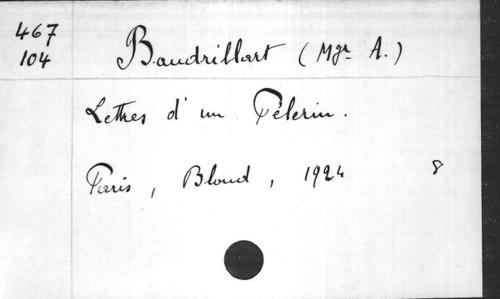 467
104
Baudrillart (Mgr A.)
Lettres d'un Pélerin.
Paris, Bloud, 1924 8